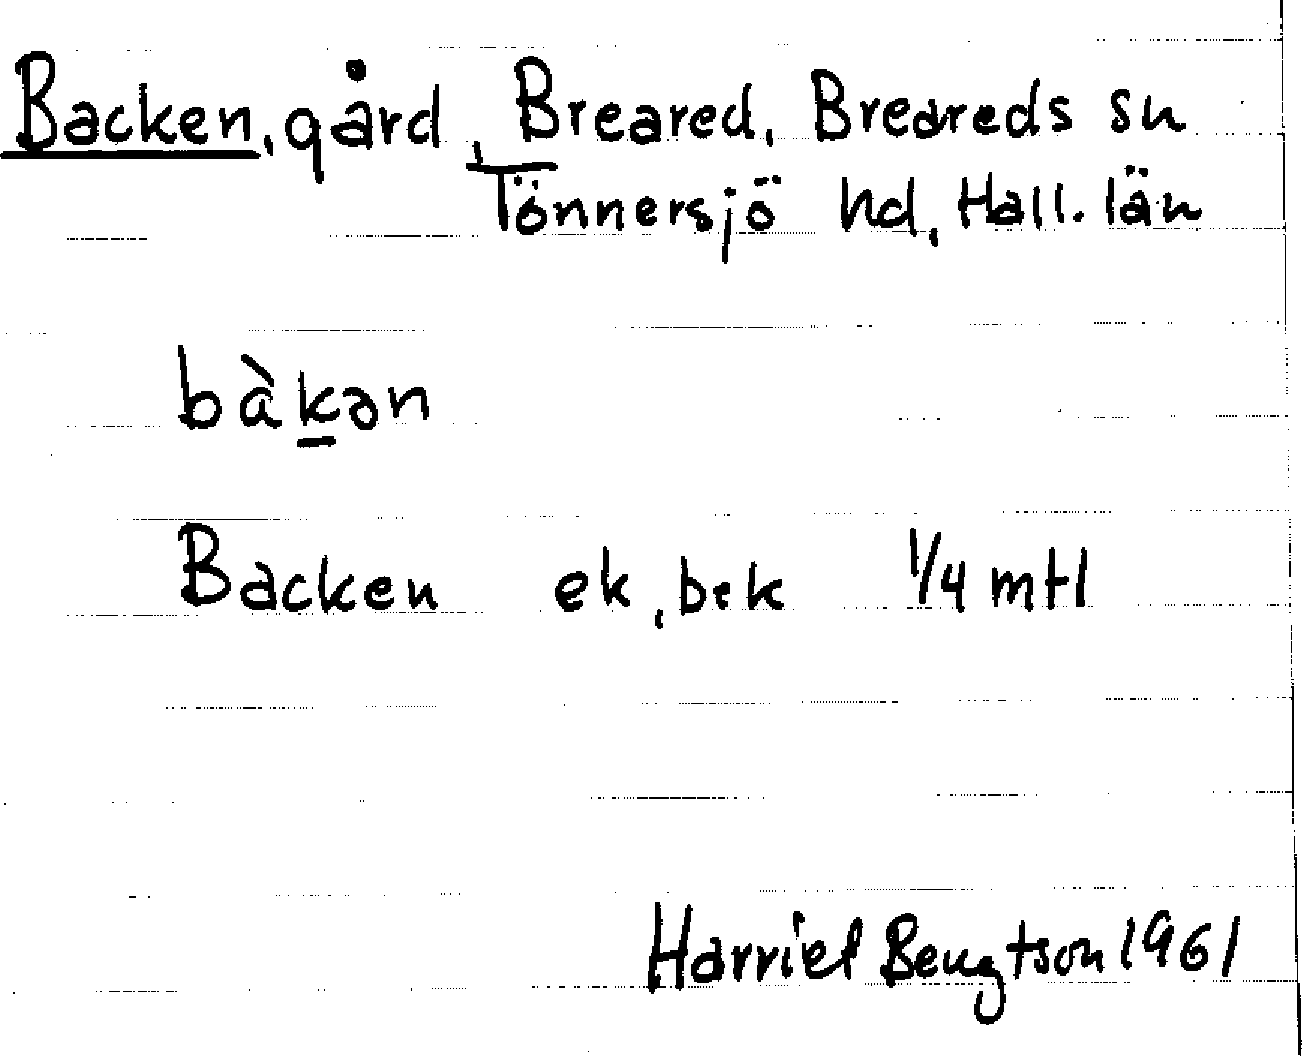 Backen, gård, Breared, Breareds sn
Tönnersjö hd, Hall. län
bàkən
Backen ek, bek 1/4 mtl
Harriet Bengtson 1961